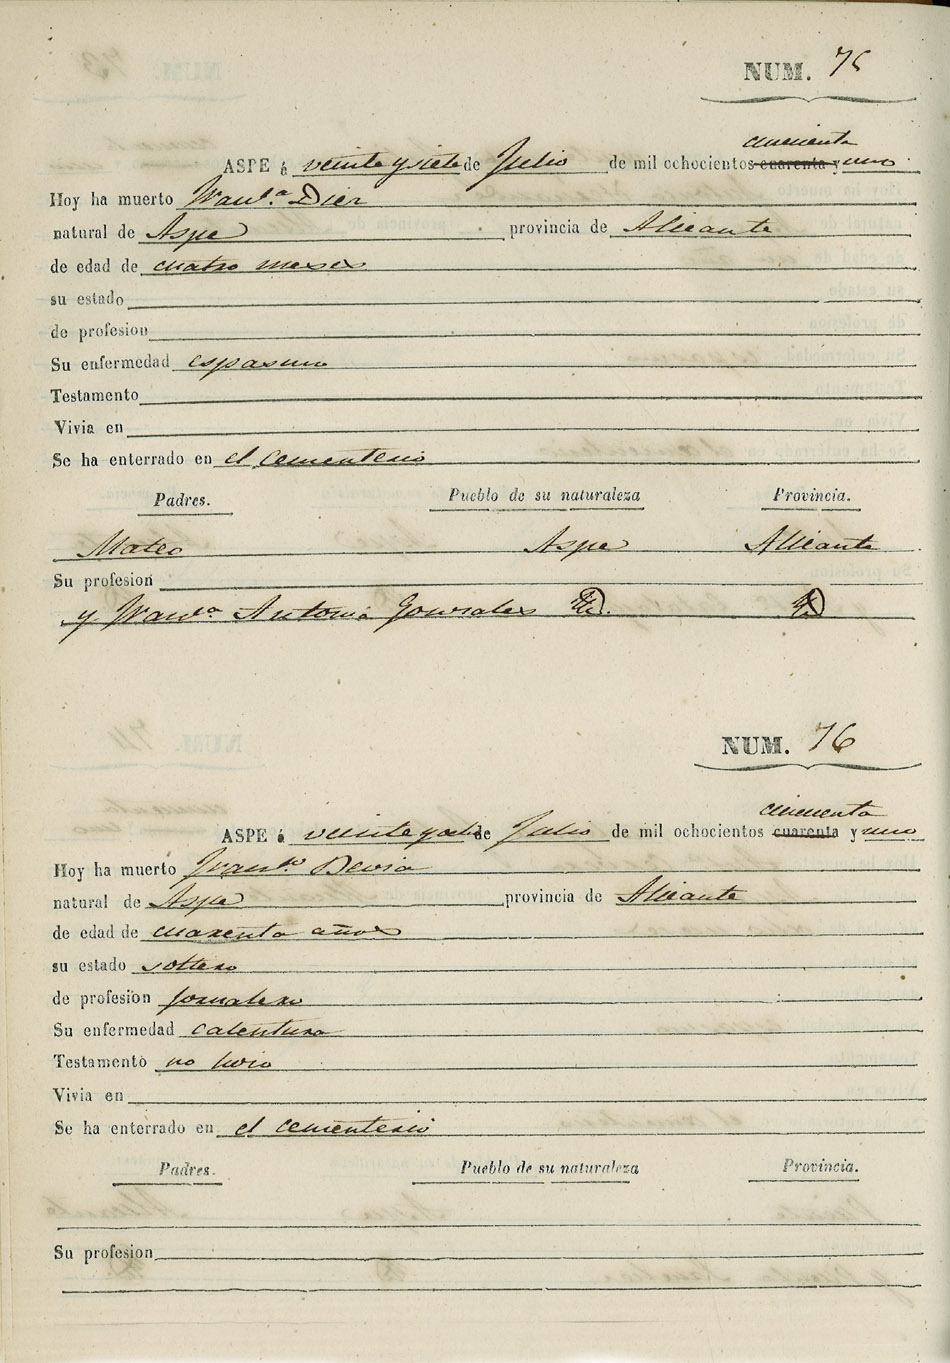 NUM. 75
cincuenta
ASPE á veinte y siete de Julio de mil ochocientos cuarenta y uno
Hoy ha muerto Fran.ca Dier
natural de Aspe provincia de Alicante
de edad de cuatro meses
su estado
de profesion
Su enfermedad espasmo
Testamento
Vivia en
Se ha enterrado en el Cementerio
Padres. Pueblo de su naturaleza Provincia.
Mateo Aspe Alicante
Su profesion
y Fran.ca Antonia Gonzales
NUM. 76
cincuenta
ASPE á veinte y ocho de Julio de mil ochocientos cuarenta y uno
Hoy ha muerto Fran.co Devia
natural de Aspe provincia de Alicante
de edad de cuarenta años
su estado soltero
de profesion jornalero
Su enfermedad calentura
Testamento no hizo
Vivia en
Se ha enterrado en el cementerio
Padres. Pueblo de su naturaleza Provincia.
Su profesion